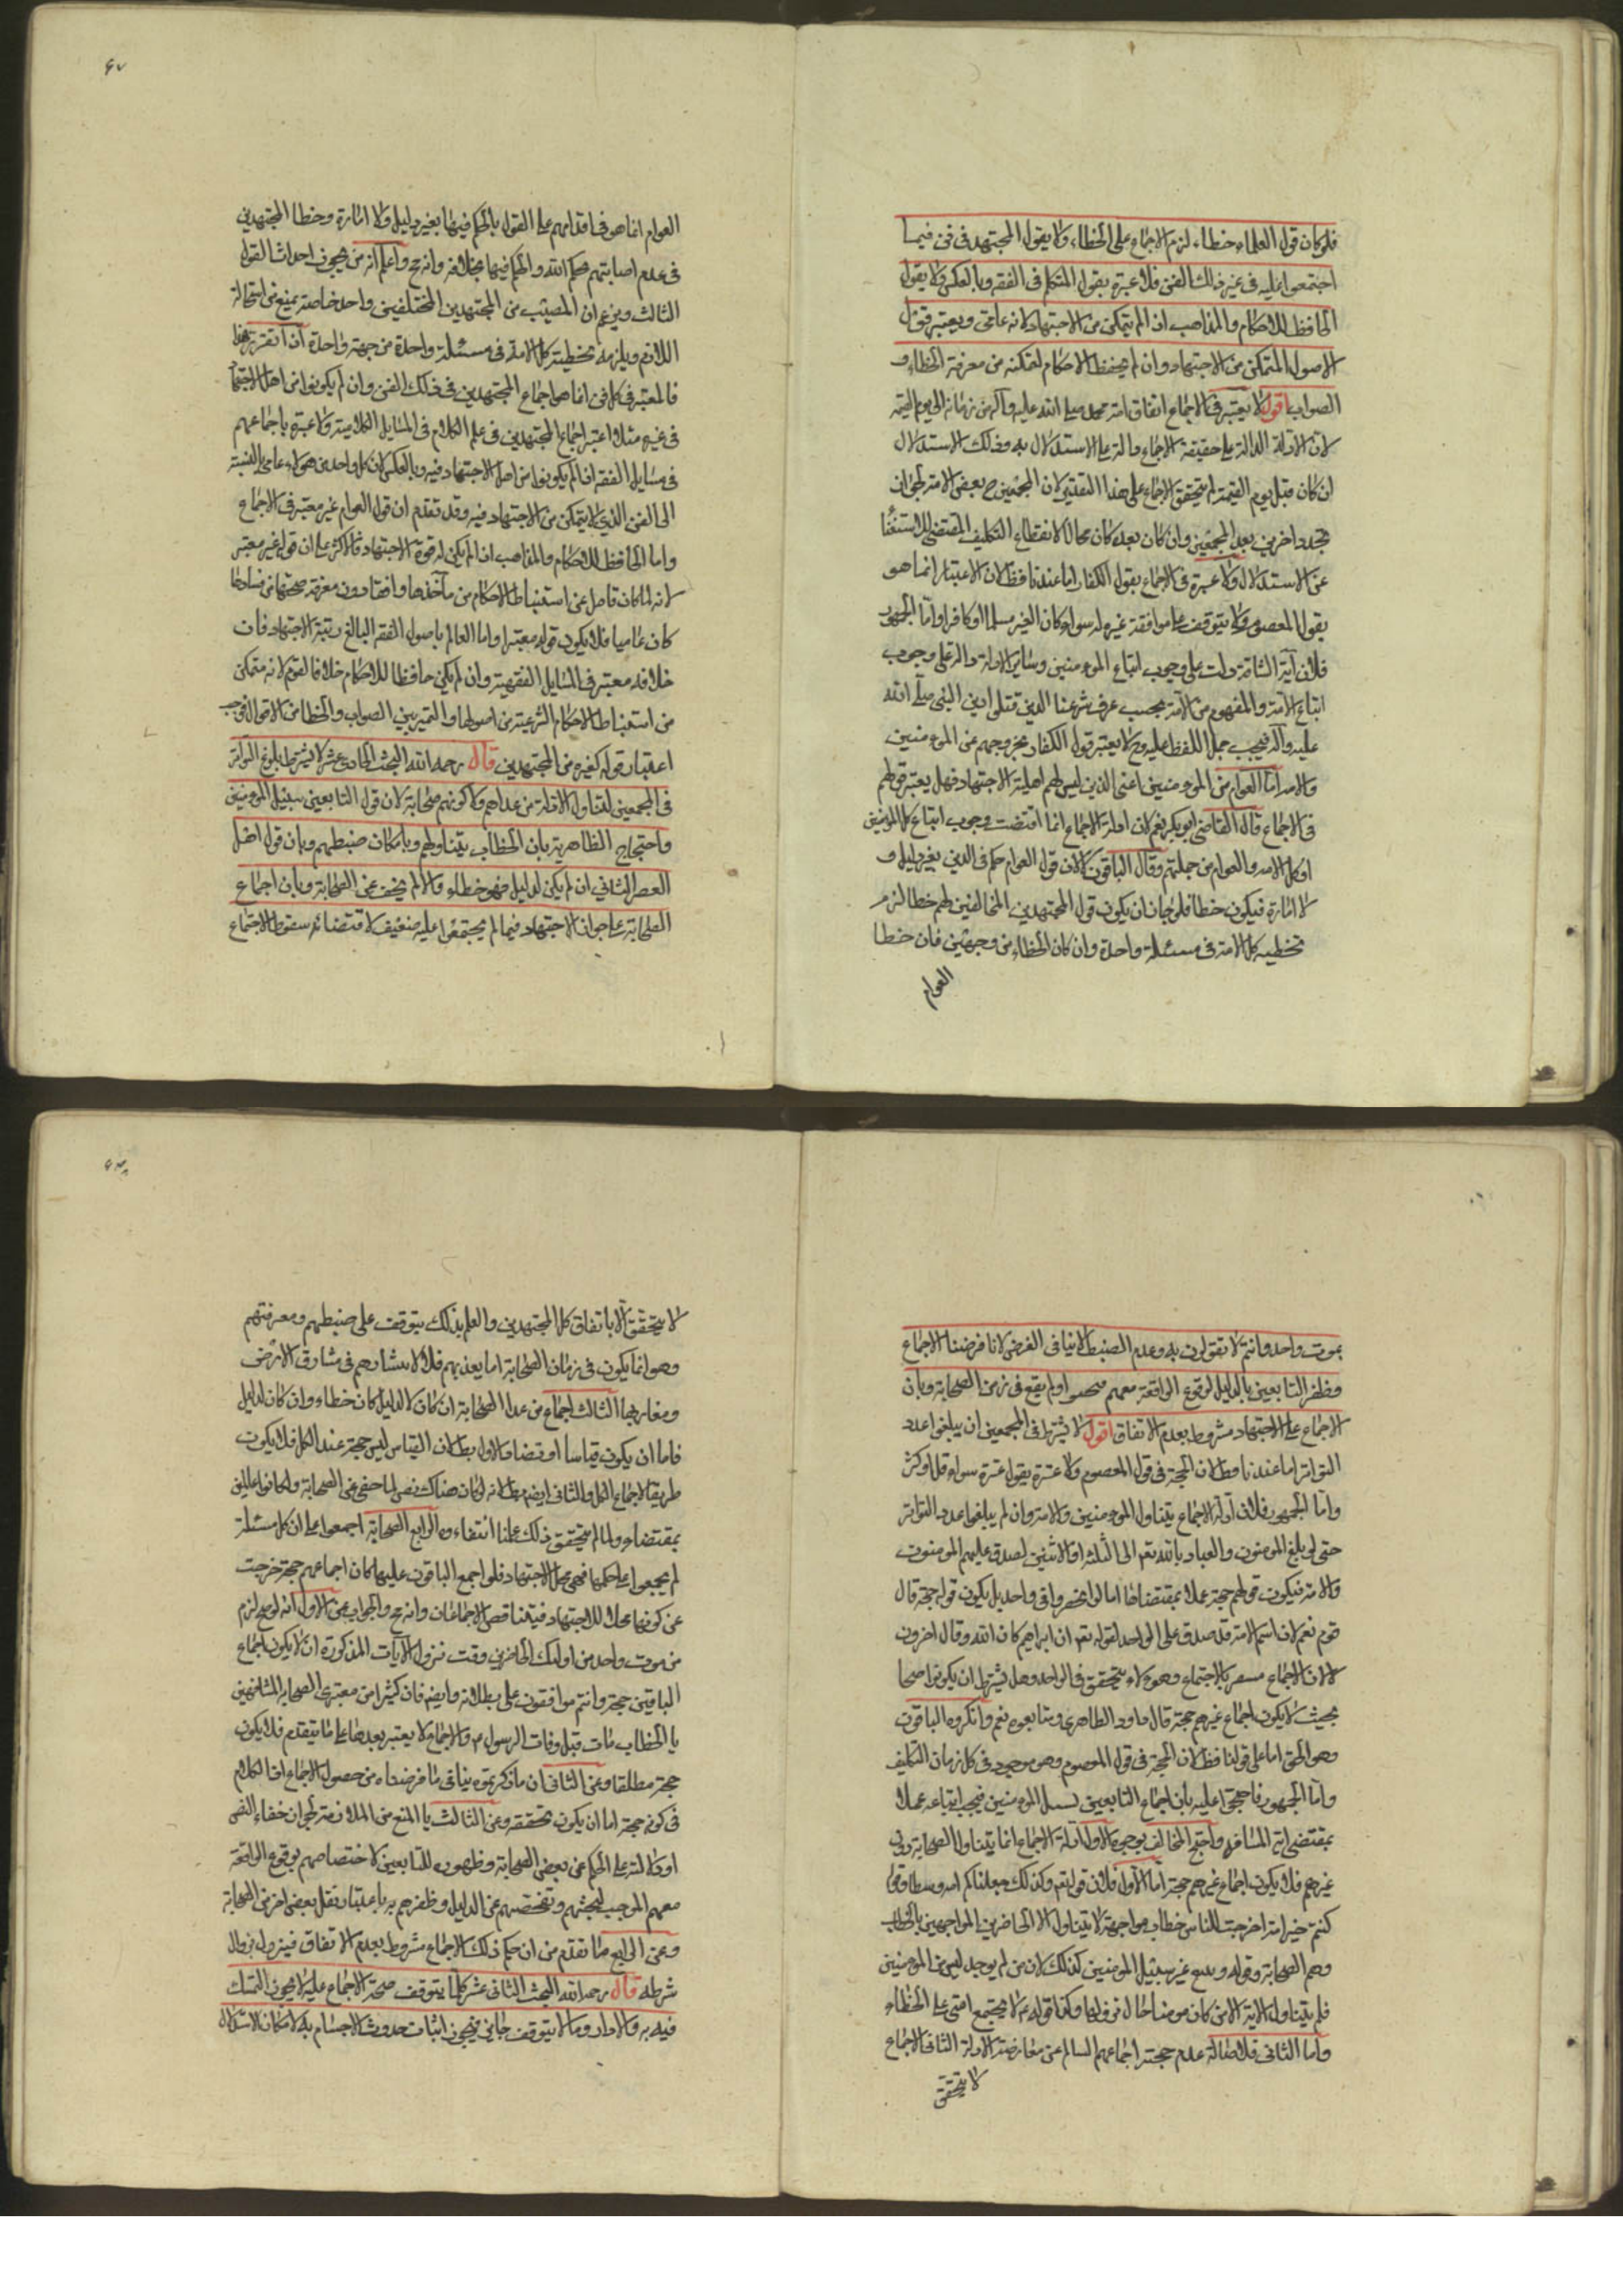 فلو كان قول العلماء خطاء لزم الاجماع على الخطاء ولا بقول المجتهد في فن فيما
اجتمعوا عليه في غير ذلك الفن فلا عبرة بقول المتكلم في الفقه وبالعكس ولا بقول
الحافظ للاحكام والمذاهب اذا لم يتمكن من الاجتهاد لانه عامى ويعتبر قول
الاصولى المتمكن من الاجتهاد وان لم يحفظ الاحكام لتمكنه من معرفة الخطاء و
الصواب اقول لا يعتبر في الاجماع اتفاق امة محمد صلى الله عليه وآله من زمانه الى يوم القيمة
لان الادلة الدالة على حقيقة الاجماع دالة على الاستدلال به وذلك الاستدلال
ان كان قبل يوم القيمة لم يتحقق الاجماع على هذا التقدير لان المجمعين ح بعض الامة لجواز
تجدد اخرين بعد المجمعين وان كان بعده كان محالا لانقطاع التكليف المقتضى للاستغناء
عن الاستدلال ولا عبرة في الاجماع بقول الكفار اما عندنا فظ لان الاعتبار انما هو
بقول المعصوم ولا يتوقف على موافقة غيره له سواء كان الغير مسلما او كافرا واما الجمهور
فلان آية المشاقة دلت على وجوب اتباع المومنين وساير الادلة دالة على وجوب
اتباع الامة والمفهوم من الامة بحسب عرف شرعنا الذين قبلوا دين النبى صلى الله
عليه وآله فيجب حمل اللفظ عليه وح لا يعتبر قول الكفار لخروجهم عن المومنين
والامة اما العوام من المومنين اعنى الذين ليس لهم اهلية الاجتهاد فهل يعتبر قولهم
في الاجماع قال القاضى ابو بكر نعم لان ادلة الاجماع انما اقتضت وجوب اتباع كل المومنين
او كل الامة والعوام من جملتهم وقال الباقون لا لان قول العوام حكم في الدين بغير دليل و
لا امارة فيكون خطا فلو جاز ان يكون قول المجتهدين المخالفين لهم خطا لزم
تخطيه كل الامة في مسئلة واحدة وان كان الخطاء من وجهين فان خطا
العوام
٤٧
العوام انما هو في اقدامهم على القول بالحكم فيها بغير دليل ولا امارة وخطا المجتهدين
في عدم اصابتهم حكم الله والحكم فيها بخلافه وانه مح واعلم انه من يجوز احداث القول
الثالث ويزعم ان المصيب من المجتهدين المختلفين واحد خاصة يمنع من استحالة
اللازم ويلزمه تخطية كل الامة في مسئلة واحدة من جهة واحدة اذا تقرر هذا
فالمعتبر في كل فن انما هو اجماع المجتهدين في ذلك الفن وان لم يكونوا من اهل الاجتهاد
في غيره مثلا اعتبر اجماع المجتهدين في علم الكلام في المسايل الكلامية ولا عبرة باجماعهم
في مسايل الفقه اذا لم يكونوا من اهل الاجتهاد فيه وبالعكس لان كل واحد من هولاء عامى بالنسبة
الى الفن الذى لا يتمكن من الاجتهاد فيه وقد تقدم ان قول العوام غير معتبر في الاجماع
واما الحافظ للاحكام والمذاهب اذا لم يكن له قوة الاجتهاد فالاكثر على ان قوله غير معتبر
لانه لما كان قاصرا عن استنباط الاحكام من مآخذها وفاقدا دون معرفة صحتها من فسادها
كان عاميا فلا يكون قوله معتبرا واما العالم باصول الفقه البالغ رتبة الاجتهاد فان
خلافه معتبر في المسايل الفقهية وان لم يكن حافظا للاحكام خلافا لقوم لانه متمكن
من استنباط الاحكام الشرعية من اصولها والتمييز بين الصواب والخطا من الاقوال فوجب
اعتبار قوله كغيره من المجتهدين قال رحمه الله البحث الحادى عشر لا يشترط بلوغ التواتر
في المجمعين لتناول الادلة من عداهم ولا كونهم صحابة لان قول التابعين سبيل المومنين
واحتجاج الظاهرية بان الخطاب يتناولهم وبامكان ضبطهم وبان قول اهل
العصر الثانى ان لم يكن لدليل فهو خطاء والا لم يخف عن الصحابة وبان اجماع
الصحابة على جواز الاجتهاد فيما لم يجتمعوا عليه ضعيف لاقتضائه سقوط الاجماع
بموت واحد وانتم لا تقولون به وعدم الضبط لا ينافى الفرض لانا فرضنا الاجماع
وظفر التابعين بالدليل لوقوع الواقعة معهم فبحثوا ولم يقع في زمن الصحابة وبان
الاجماع على الاجتهاد مشروط بعدم الاتفاق اقول لا يشترط في المجمعين ان يبلغوا عدد
التواتر اما عندنا فظ لان الحجة في قول المعصوم ولا عبرة بقول غيره سواء قل او كثر
واما الجمهور فلان ادلة الاجماع يتناول المومنين والامة وان لم يبلغوا عدد التواتر
حتى لو بلغ المومنون والعياذ بالله تعم الى الثلثة او الاثنين لصدق عليهم المومنون
والامة فيكون قولهم حجة عملا بمقتضاها اما لو انحصروا في واحد بل يكون قوله حجة قال
قوم نعم لان اسم الامة قد صدق على الواحد لقوله تعم ان ابراهيم كان امة وقال اخرون
لا لان الاجماع مسعر بالاجتماع وهو لا يتحقق في الواحد وهل يشترط ان يكونوا صحابا
بحيث لا يكون اجماع غيرهم حجة قال داود الظاهرى ومتابعوه نعم وانكره الباقون
وهو الحق اما على قولنا فظ لان الحجة في قول المعصوم وهو موجود في كل زمان التكليف
واما الجمهور فاحتجوا عليه بان اجماع التابعين سبيل المومنين فيجب اتباعه عملا
بمقتضى اية المشاقة واحتج المخالف بوجوه الاول ادلة الاجماع انما يتناول الصحابة دون
غيرهم فلا يكون اجماع غيرهم حجة اما الاول فلان قوله تعم وكذلك جعلناكم امة وسطا وقوله
كنتم خير امة اخرجت للناس خطاب مواجهة لا يتناول الا الحاضرين المواجهين بالخطاب
وهم الصحابة وقوله ويتبع غير سبيل المومنين كذلك لان من لم يوجد ليس من المومنين
فلم يتناول الاية الا من كان مومنا حال نزولها وكذا قوله ع لا يجتمع امتى على الخطاء
واما الثانى فلاصالة عدم حجية اجماعهم السالم عن معارضة الادلة الثانى الاجماع
لا يتحقق
لا يتحقق الا باتفاق كل المجتهدين والعلم بذلك يتوقف على ضبطهم ومعرفتهم
وهو انما يكون في زمان الصحابة اما بعدهم فلا لانتشارهم في مشارق الارض
ومغاربها الثالث اجماع من عدا الصحابة ان كان لا لدليل كان خطاء وان كان لدليل
فاما ان يكون قياسا او نصا والاول بط لان القياس ليس حجة عند الكل فلا يكون
طريقا لاجماع الكل والثانى ايضا بط لانه لو كان هناك نص لما خفى عن الصحابة ولكانوا عاملين
بمقتضاه ولما لم يتحقق ذلك علمنا انتفاءه الرابع الصحابة اجمعوا على ان كل مسئلة
لم يجمعوا على حكمها فهى محل الاجتهاد فلو اجمع الباقون عليها كان اجماعهم حجة خرجت
عن كونها محلا للاجتهاد فيتناقض الاجماعان وانه مح والجواب عن الاول انه لو صح لزم
من موت واحد من اولئك الحاضرين وقت نزول الآيات المذكورة ان لا يكون اجماع
الباقين حجة وانتم موافقون على بطلانه وايضا فان كثيرا من معتبرى الصحابة المشافهين
بالخطاب مات قبل وفات الرسول ص والاجماع لا يعتبر بعدها على ما يتقدم فلا يكون
حجة مطلقا وعن الثانى ان ما ذكرتموه ينافى ما فرضناه من حصول الاجماع اذ الكلام
في كونه حجة اما ان يكون تحققه وعن الثالث بالمنع من الملازمة لجواز خفاء النص
او دلالته على الحكم عن بعض الصحابة وظهوره للتابعين لاختصاصهم بوقوع الواقعة
معهم الموجب لبحثهم وتفحصهم عن الدليل وظفرهم به باعتبار نقل بعض اخر من الصحابة
وعن الرابع ما تقدم من ان حكم ذلك الاجماع مشروط بعدم الاتفاق فيزول بزوال
شرطه قال رحمه الله البحث الثانى عشر كلما يتوقف صحة الاجماع عليه لا يجوز التمسك
فيه به والا دار وما لا يتوقف جايز فيجوز اثبات حدوث الاجسام به لامكان الاستدلال